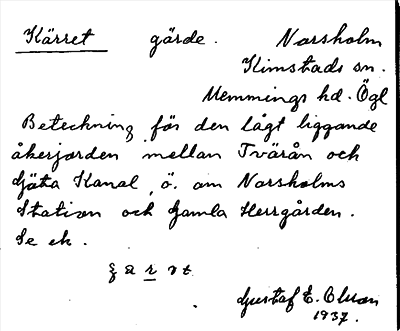 Kärret gärde. Norsholm
Kimstads sn.
Memmings hd. Ögl
Beteckning för den lågt liggande
åkerjorden mellan Tvärån och
Göta Kanal, ö. om Norsholms
Station och Gamla Herrgården.
Se ek.
Gustaf E. Olson
1937.